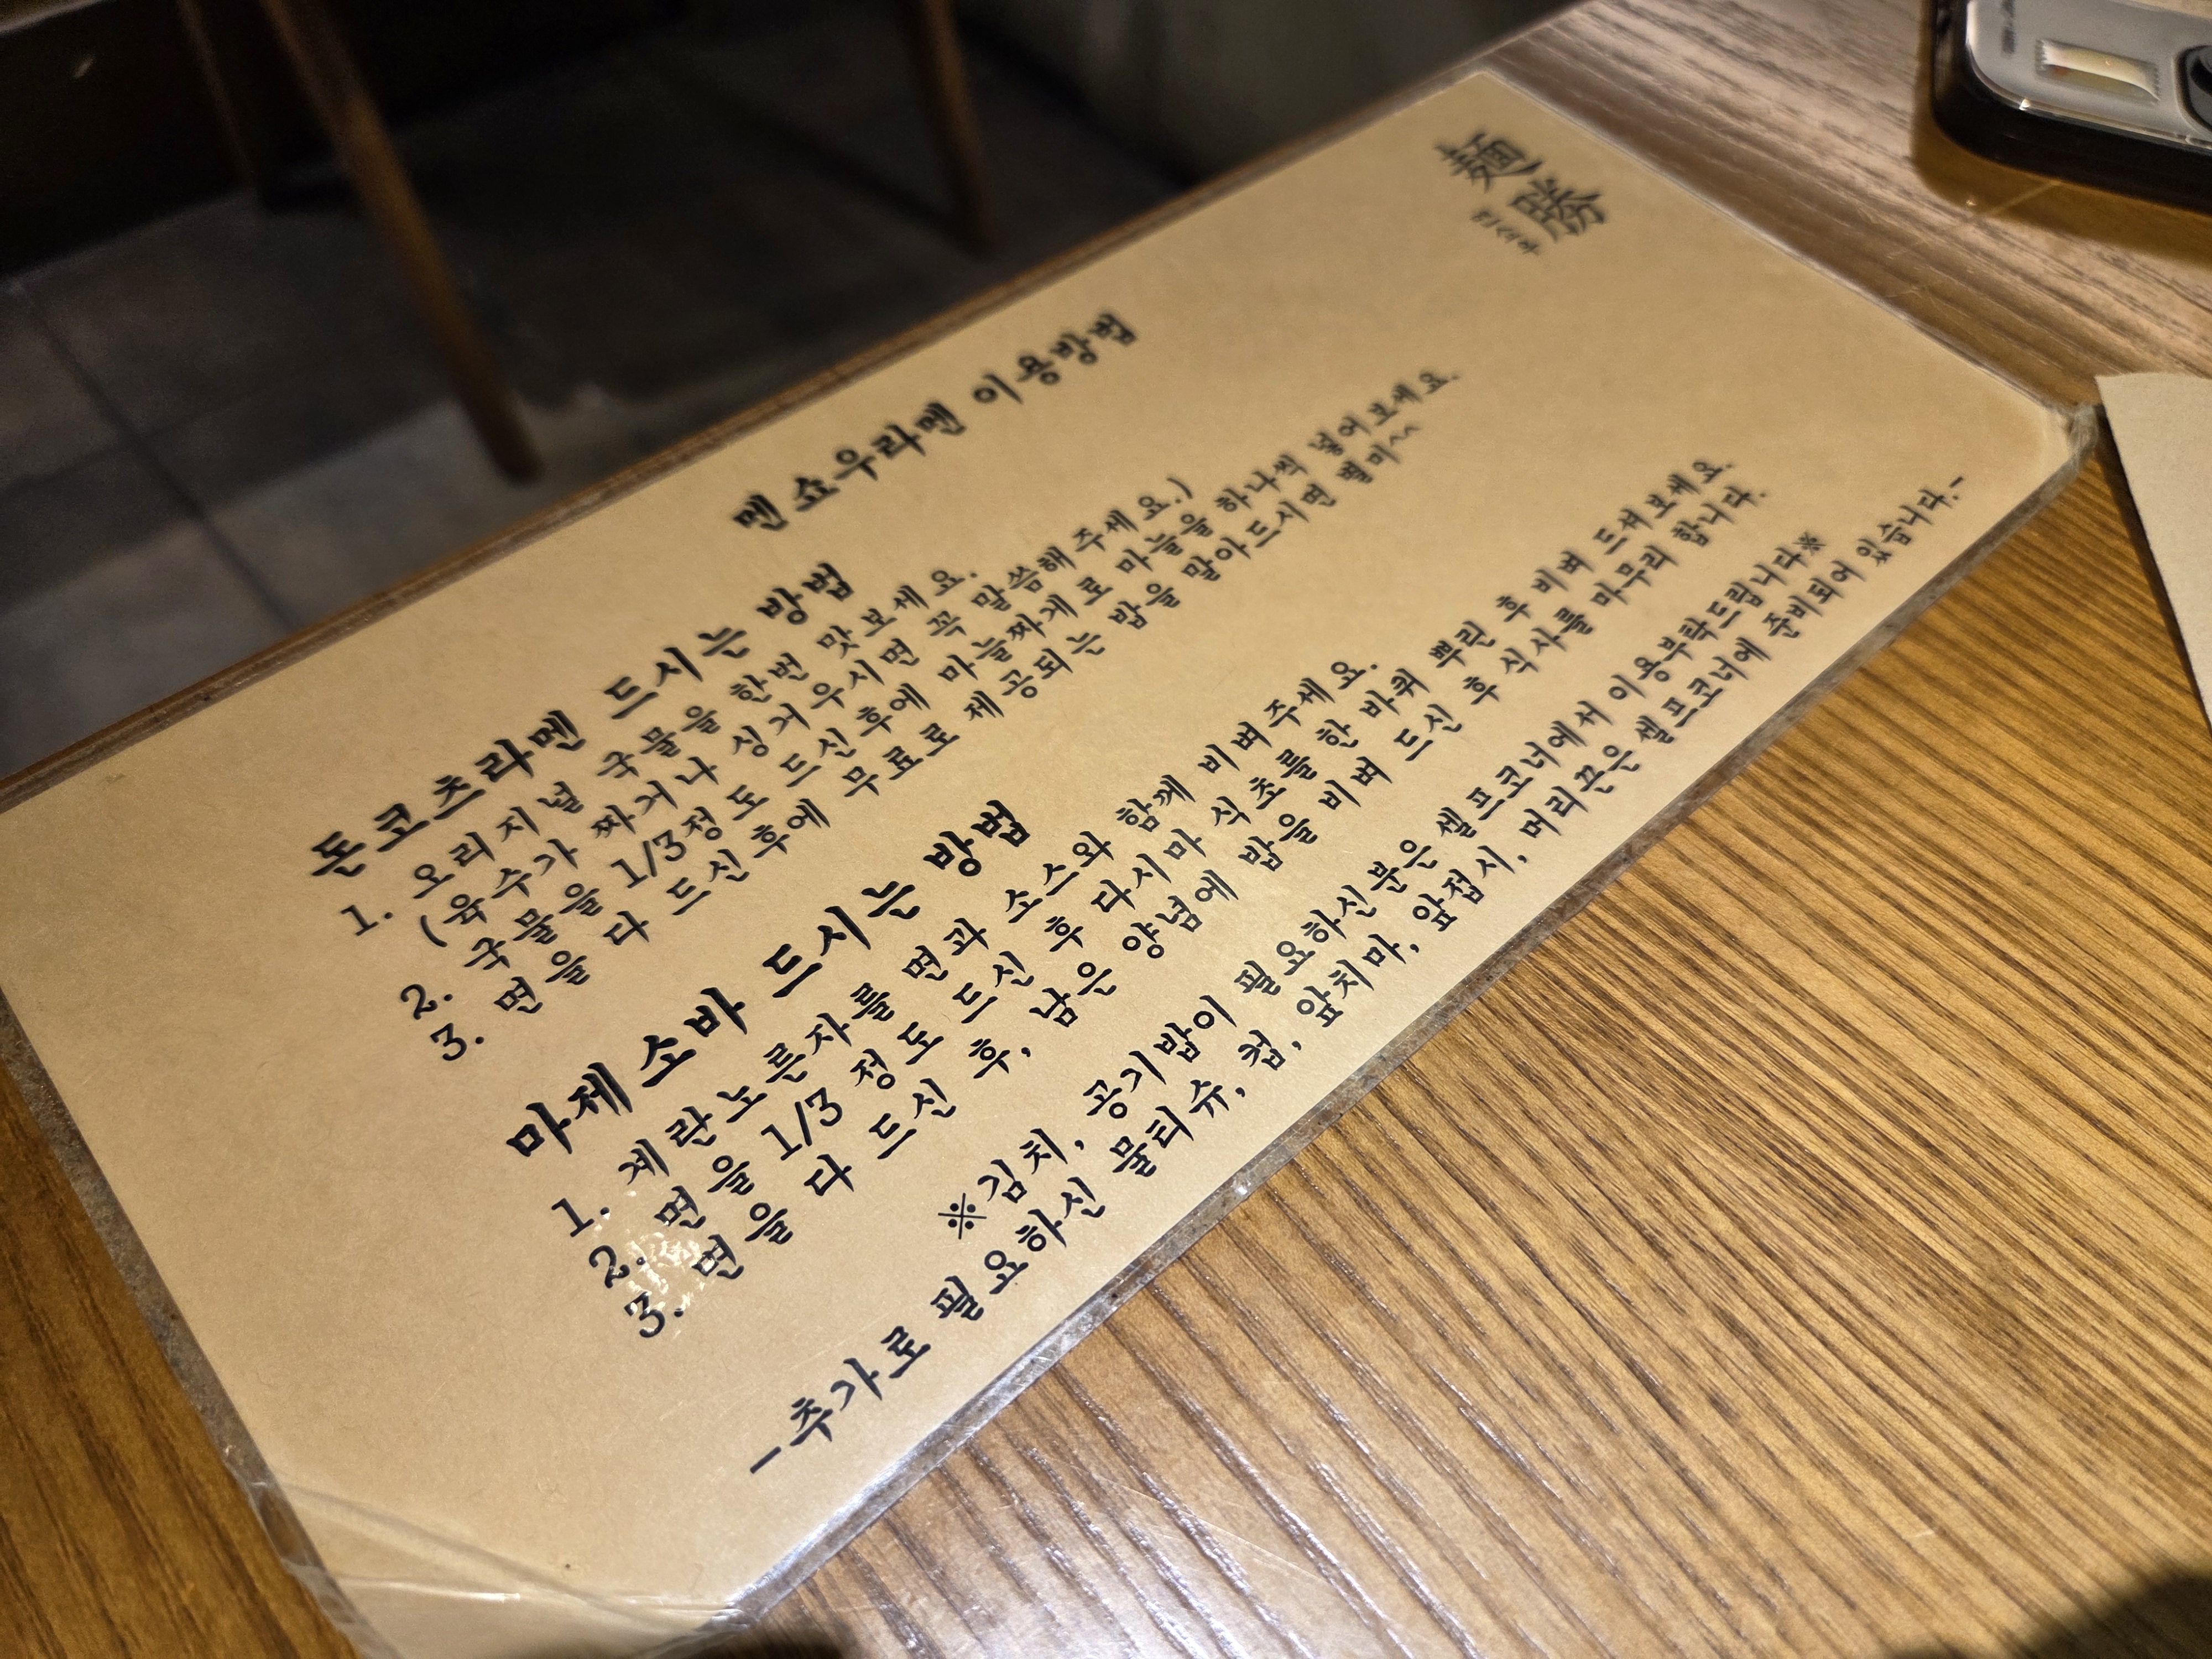 麺
勝
멘쇼우
멘쇼우라멘 이용방법
돈코츠라멘 드시는 방법
1. 오리지널 국물을 한번 맛보세요.
(육수가 짜거나 싱거우시면 꼭 말씀해 주세요.)
2. 국물을 1/3정도 드신후에 마늘짜게로 마늘을 하나씩 넣어보세요.
3. 면을 다 드신후에 무료로 제공되는 밥을 말아드시면 별미^^
마제소바 드시는 방법
1. 계란노른자를 면과 소스와 함께 비벼주세요.
2. 면을 1/3 정도 드신 후 다시마 식초를 한 바퀴 뿌린 후 비벼 드셔보세요.
3. 면을 다 드신 후, 남은 양념에 밥을 비벼 드신 후 식사를 마무리 합니다.
※김치, 공기밥이 필요하신 분은 셀프코너에서 이용부탁드립니다※
-추가로 필요하신 물티슈, 컵, 앞치마, 앞접시, 머리끈은 셀프코너에 준비되어 있습니다.-